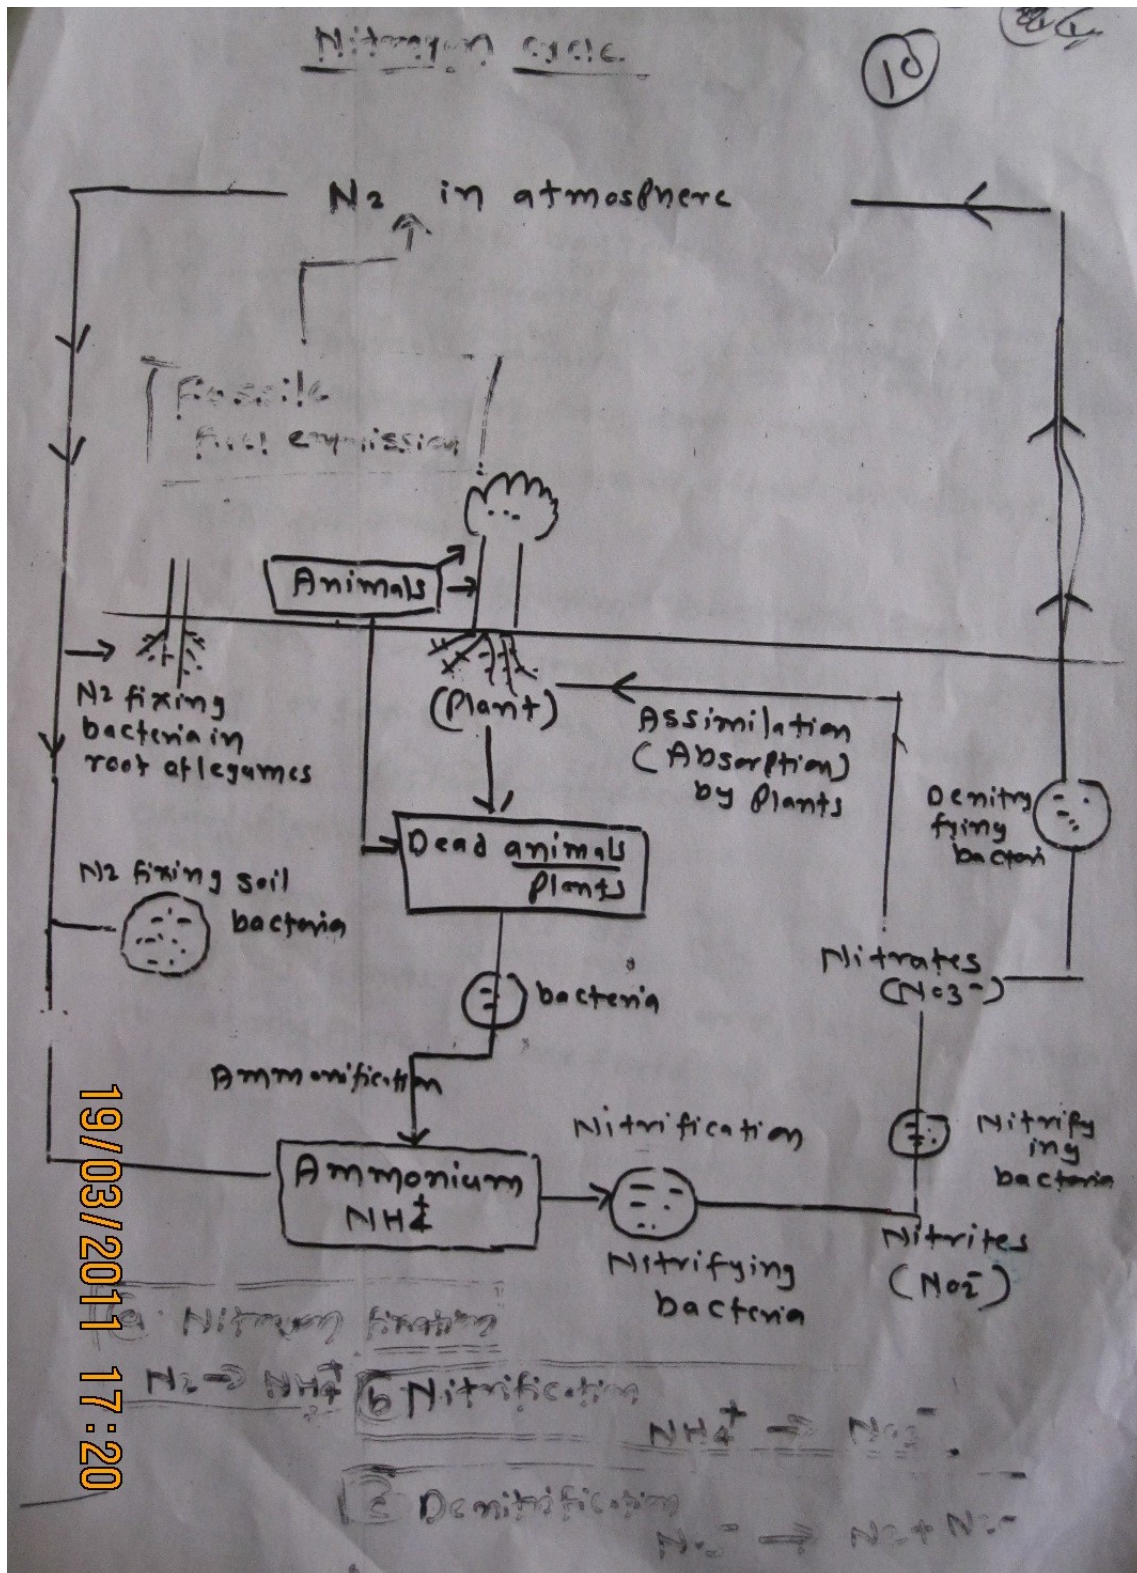 Nitrogen cycle
10
N2 in atmosphere
Fossile
fuel emmission
Animals
N2 fixing
bacteria in
root of legumes
(Plant)
Assimilation
(Absorption)
by Plants
Denitry
fying
bacteri
Dead animals
Plants
N2 fixing soil
bacteria
bacteria
Nitrates
(NO3-)
Ammonification
Nitrification
Nitrify
ing
bacteria
Ammonium
NH4+
Nitrifying
bacteria
Nitrites
(NO2-)
a Nitrogen fixation
N2 → NH4+
b Nitrification
NH4+ → NO3-
c Denitrification
19/03/2011 17:20